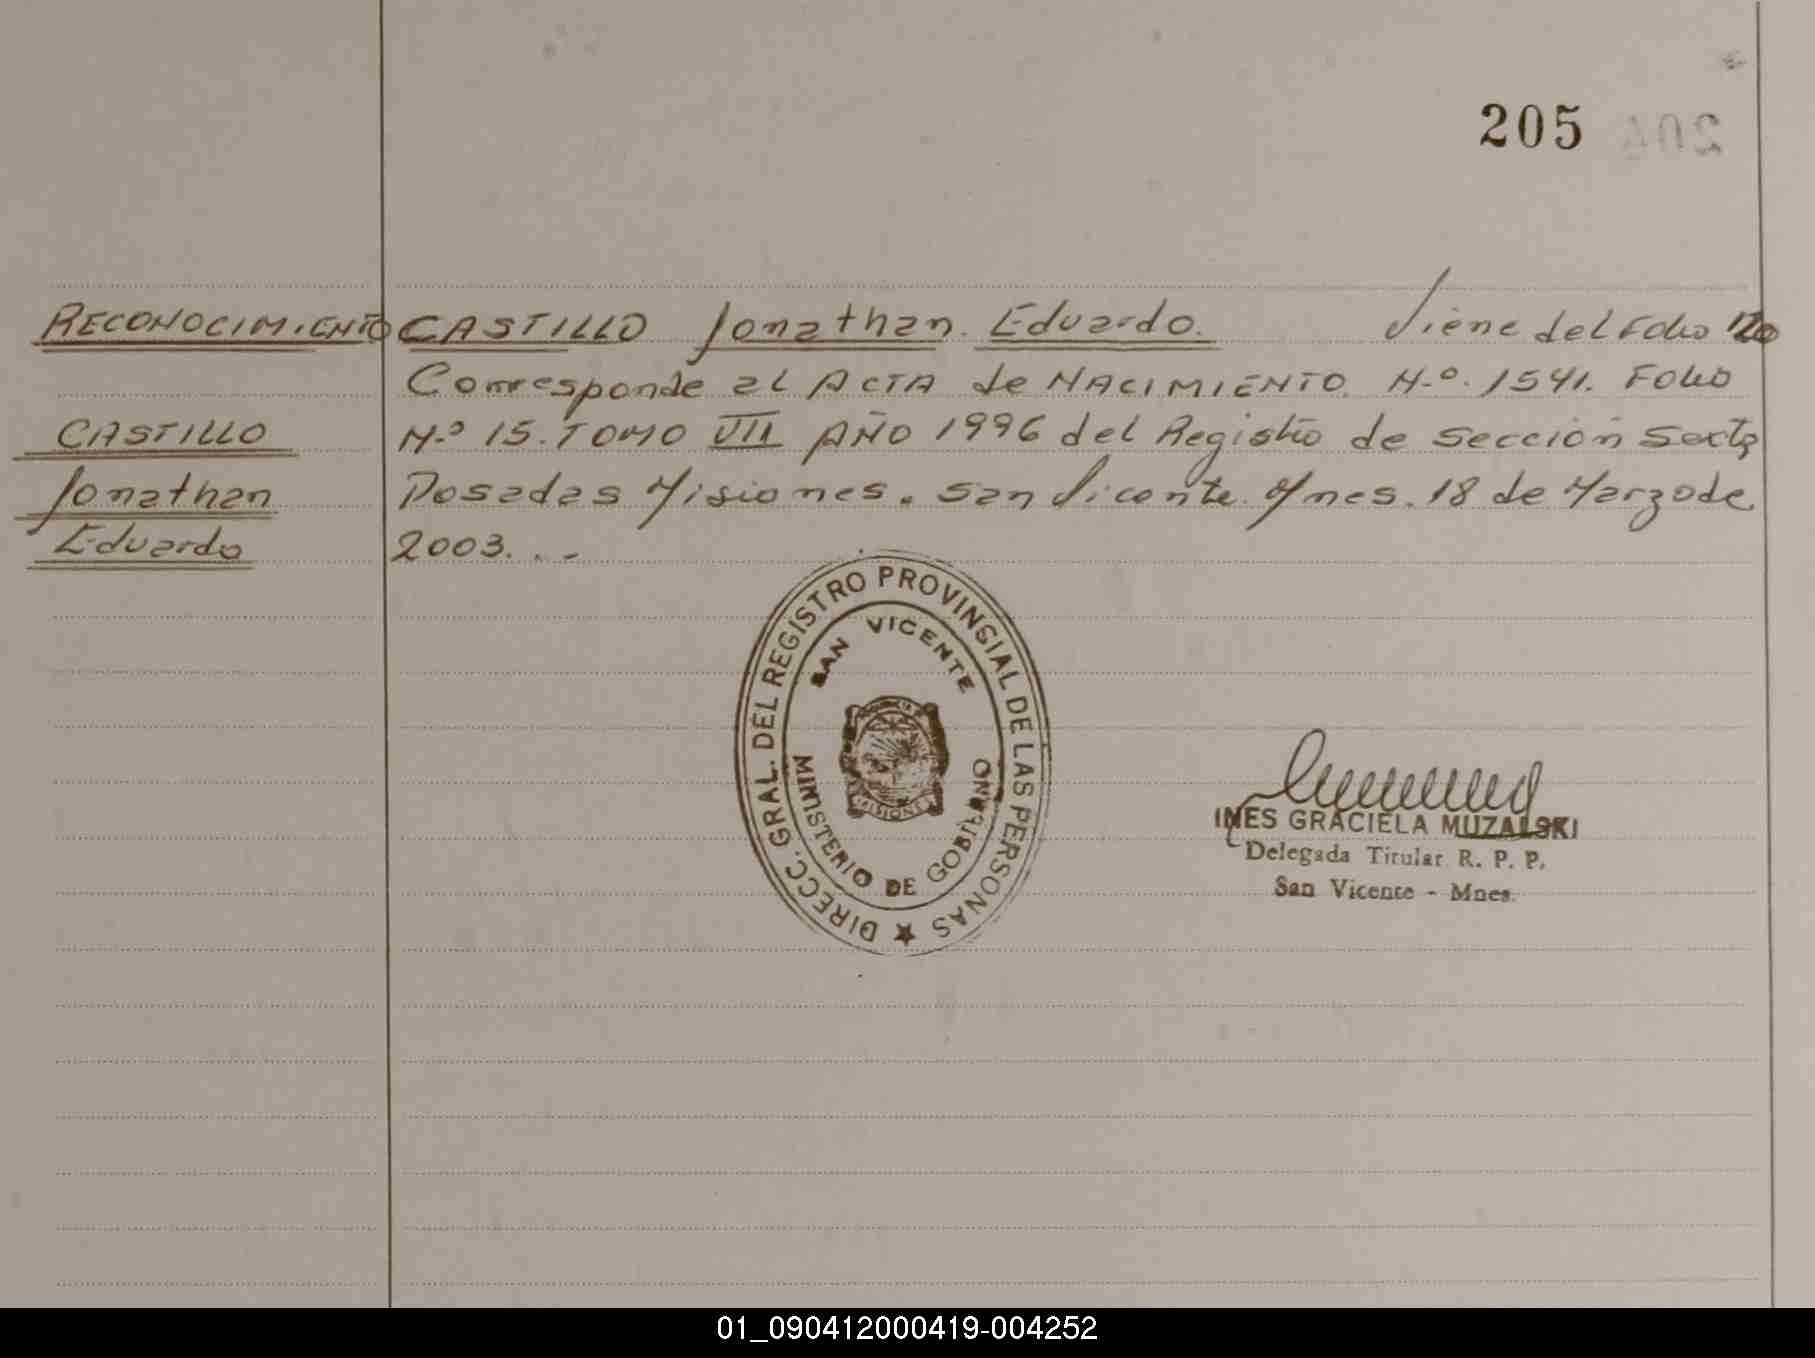 205
RECONOCIMIENTO CASTILLO Jonathan Eduardo. Viene del Folio
Corresponde al ACTA de NACIMIENTO. N.º 1541. FOLIO
CASTILLO N.º 15. TOMO VII AÑO 1996 del Registro de Sección Sexta
Jonathan Posadas Misiones. San Vicente. Mnes. 18 de Marzo de
Eduardo 2003. . -
DIRECC. GRAL. DEL REGISTRO PROVINSIAL DE LAS PERSONAS
SAN VICENTE
MISIONES
MINISTERIO DE GOBIERNO
INES GRACIELA MUZALSKI
Delegada Titular R. P. P.
San Vicente - Mnes.
01_090412000419-004252